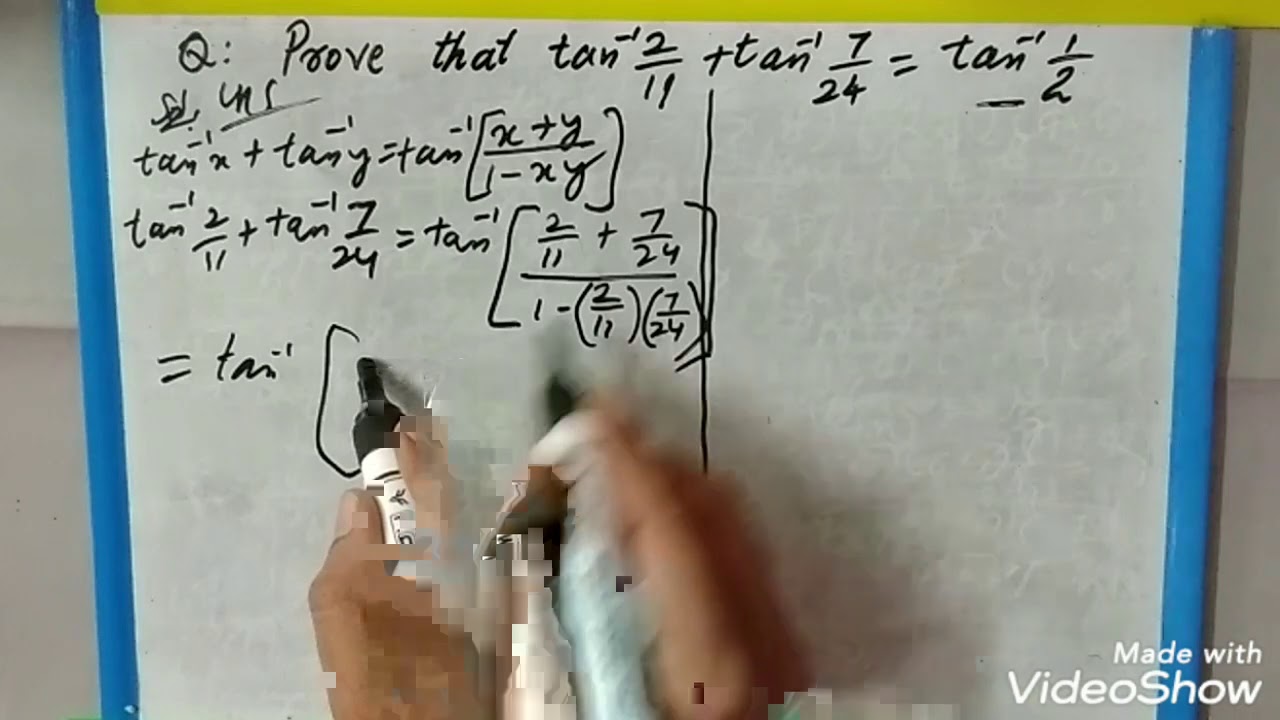 Q: Prove that tan⁻¹ 2/11 + tan⁻¹ 7/24 = tan⁻¹ 1/2
Sol. LHS
tan⁻¹x + tan⁻¹y = tan⁻¹[x+y/1-xy]
tan⁻¹ 2/11 + tan⁻¹ 7/24 = tan⁻¹[2/11 + 7/24 / 1-(2/11)(7/24)]
= tan⁻¹ [
Made with
VideoShow